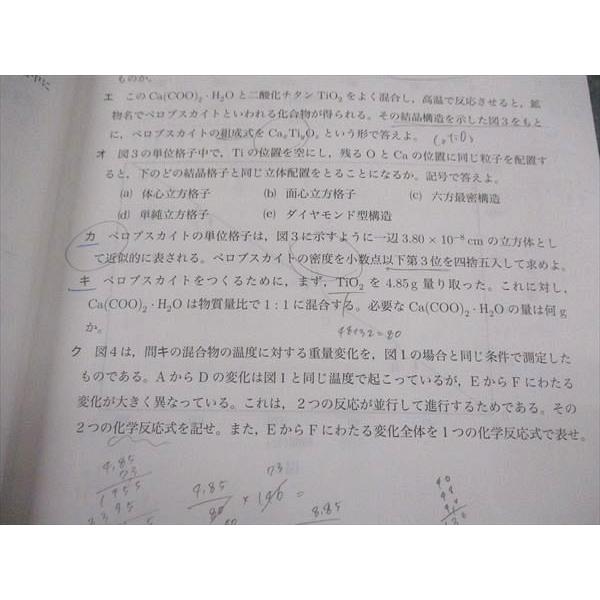 ものか。
エ このCa(COO)₂・H₂Oと二酸化チタンTiO₂をよく混合し，高温で反応させると，鉱
物名でペロブスカイトといわれる化合物が得られる。その結晶構造を示した図3をもと
に，ペロブスカイトの組成式をCaₓTiᵧO_zという形で答えよ。
オ 図3の単位格子中で，Tiの位置を空にし，残るOとCaの位置に同じ粒子を配置す
ると，下のどの結晶格子と同じ立体配置をとることになるか。記号で答えよ。
(a) 体心立方格子 (b) 面心立方格子 (c) 六方最密構造
(d) 単純立方格子 (e) ダイヤモンド型構造
カ ペロブスカイトの単位格子は，図3に示すように一辺3.80×10⁻⁸cmの立方体とし
て近似的に表される。ペロブスカイトの密度を小数点以下第3位を四捨五入して求めよ。
キ ペロブスカイトをつくるために，まず，TiO₂を4.85g量り取った。これに対し，
Ca(COO)₂・H₂Oは物質量比で1:1に混合する。必要なCa(COO)₂・H₂Oの量は何g
か。
48+32=80
ク 図4は，問キの混合物の温度に対する重量変化を，図1の場合と同じ条件で測定した
ものである。AからDの変化は図1と同じ温度で起こっているが，EからFにわたる
変化が大きく異なっている。これは，2つの反応が並行して進行するためである。その
2つの化学反応式を記せ。また，EからFにわたる変化全体を1つの化学反応式で表せ。
4.85
73
1455
3395
4.85 × 146 =
80
73
8.85